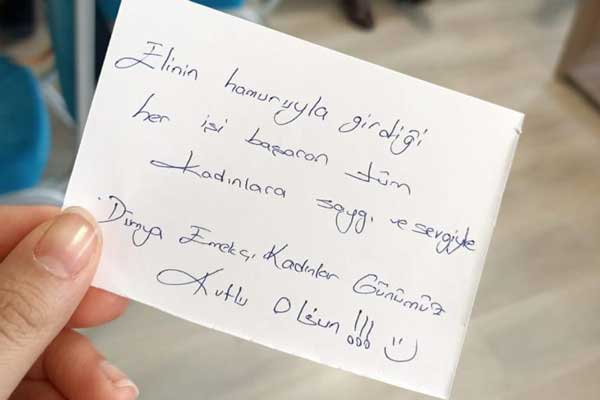 Elinin hamuruyla girdiği
her işi başaran tüm
Kadınlara saygı ve sevgiyle
Dünya Emekçi Kadınlar Günümüz
Kutlu Olsun!!! :)